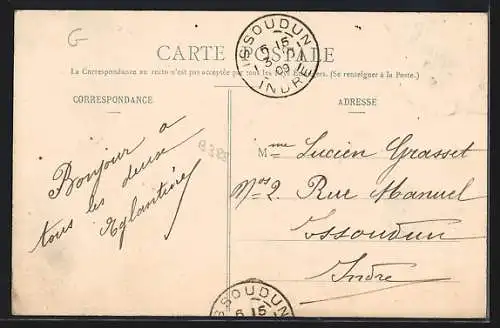 G
CARTE POSTALE
La Correspondance au recto n'est pas acceptée par tous les Pays Etrangers. (Se renseigner à la Poste.)
ISSOUDUN
6 15
3
09
INDRE
CORRESPONDANCE
Bonjour a
tous les deux
Eglantine
ADRESSE
Mme Lucien Grasset
2 Rue Manuel
Issoudun
Indre
ISSOUDUN
6 15